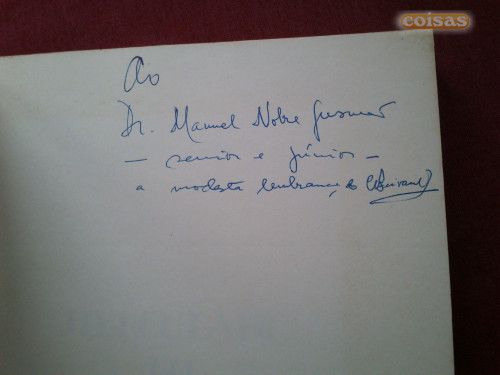 coisas
Ao
Dr. Manuel Nobre Gusmão
— senior e júnior —
a modesta lembrança do